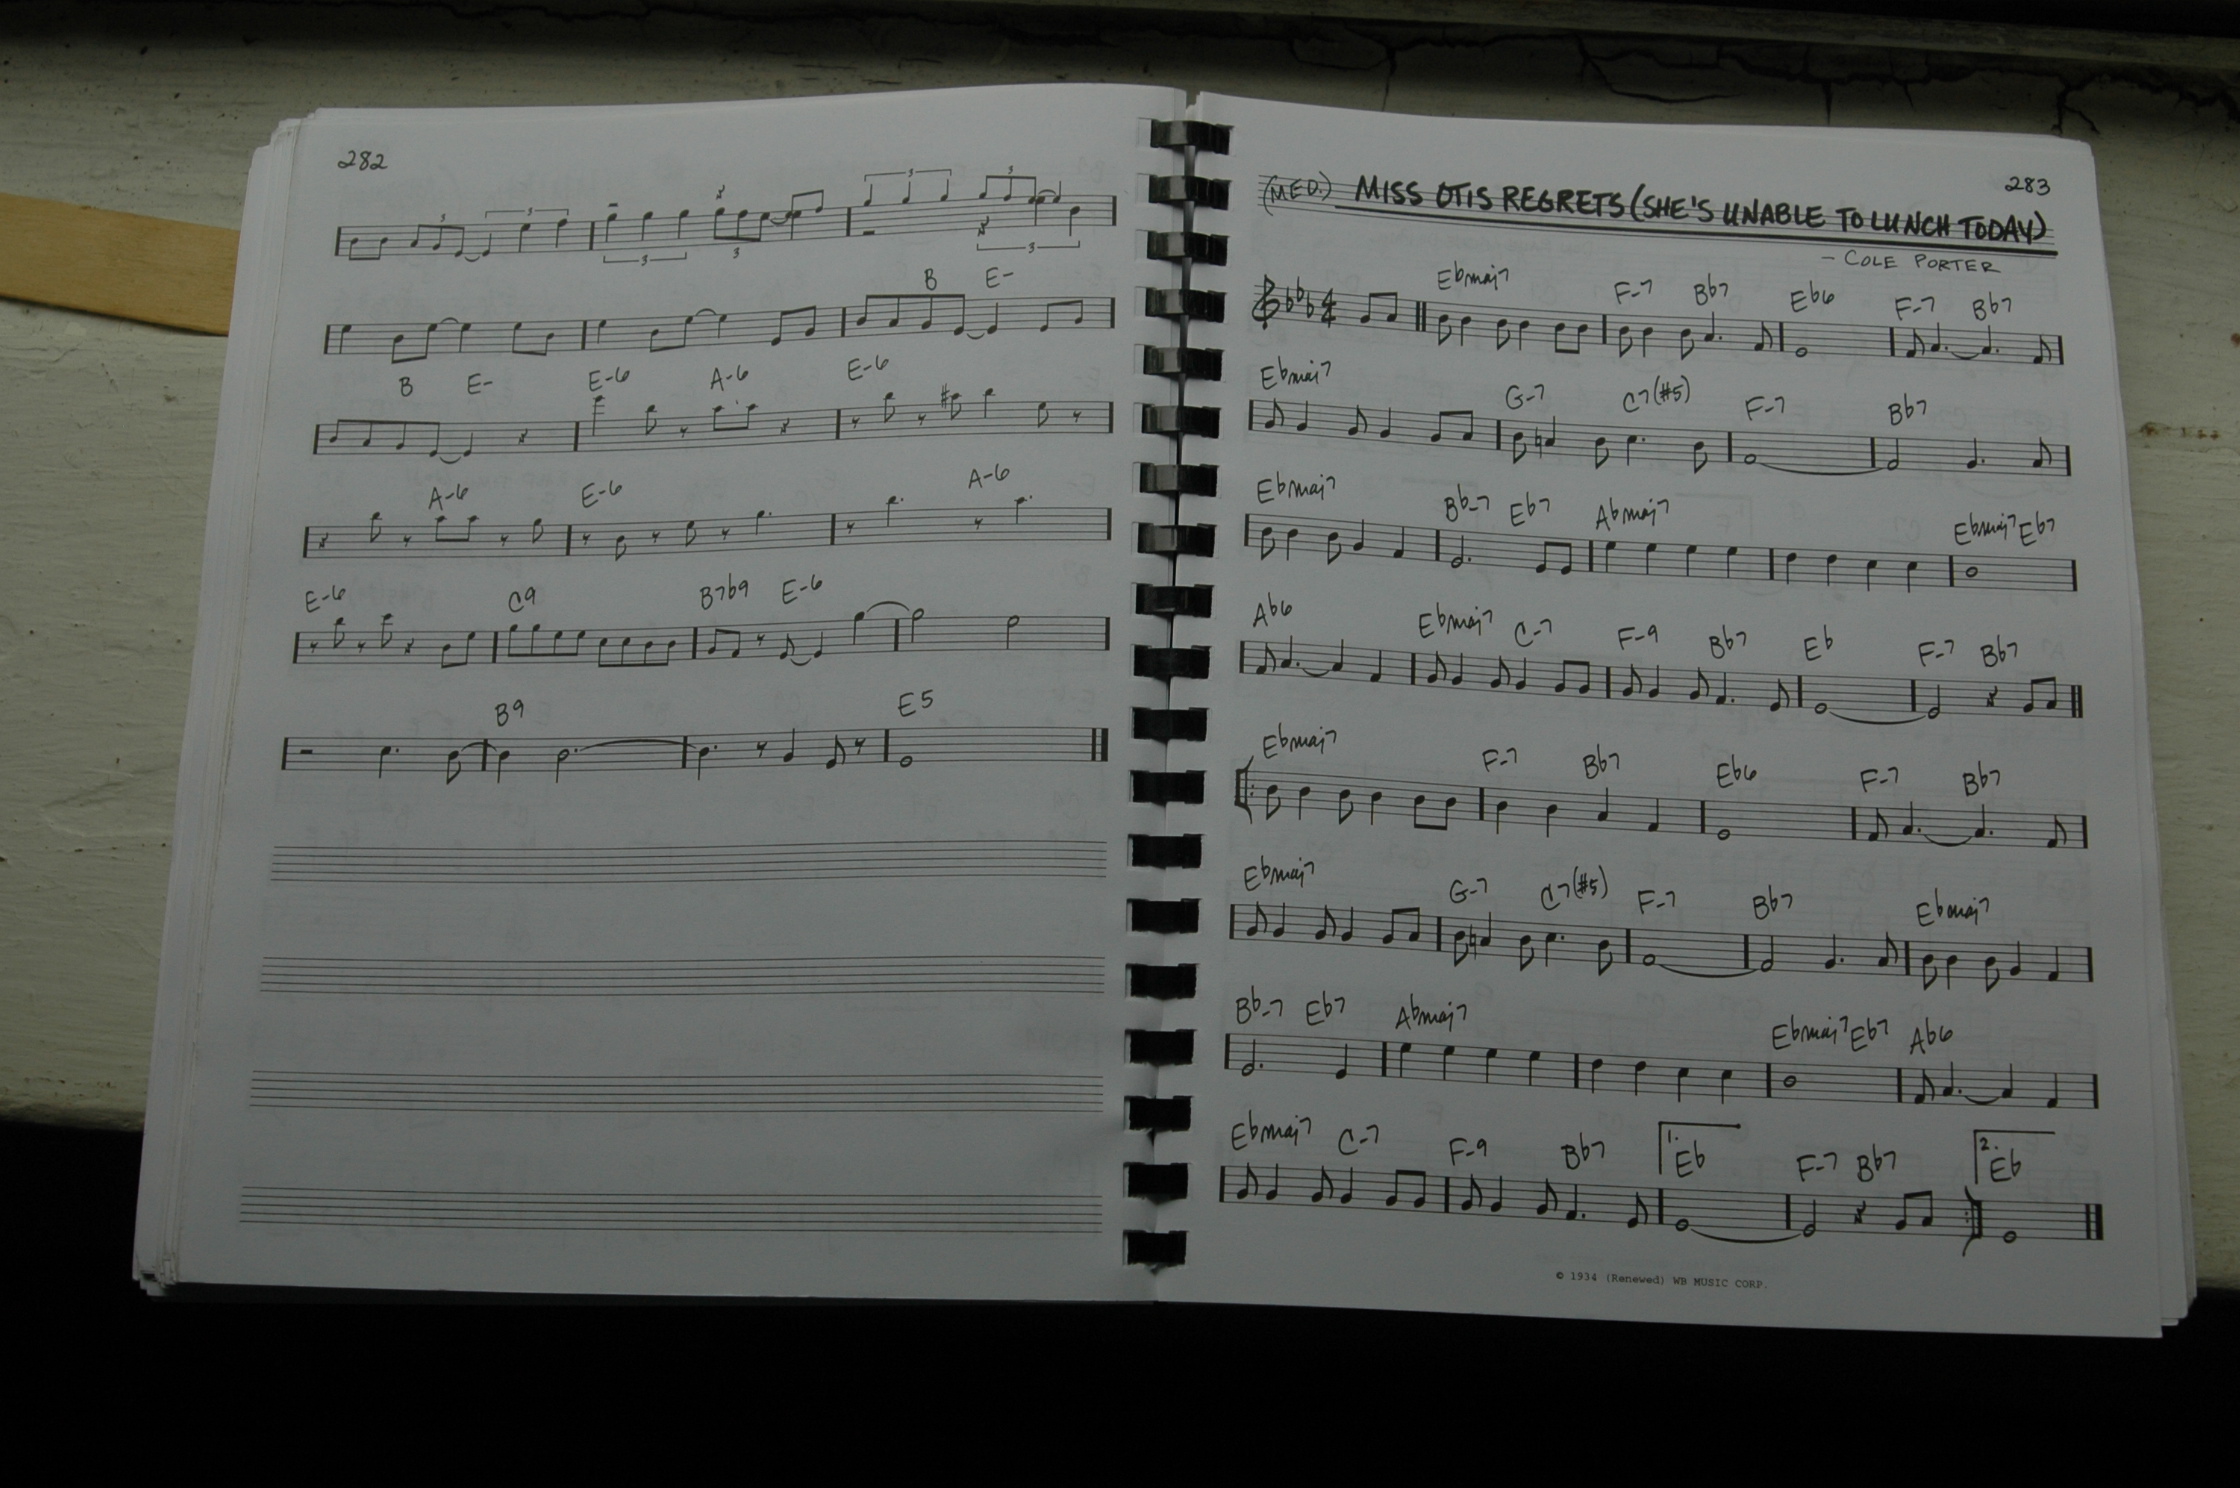 282
3 3 3 3 3 3 3 3
B E-
B E- E-6 A-6 E-6
A-6 E-6 A-6
E-6 C9 B7b9 E-6
B9 E5
283
(MED.) MISS OTIS REGRETS (SHE'S UNABLE TO LUNCH TODAY)
- COLE PORTER
Ebmaj7 F-7 Bb7 Eb6 F-7 Bb7
4
4
Ebmaj7 G-7 C7(#5) F-7 Bb7
Ebmaj7 Bb-7 Eb7 Abmaj7 Ebmaj7 Eb7
Ab6 Ebmaj7 C-7 F-9 Bb7 Eb F-7 Bb7
Ebmaj7 F-7 Bb7 Eb6 F-7 Bb7
Ebmaj7 G-7 C7(#5) F-7 Bb7 Ebmaj7
Bb-7 Eb7 Abmaj7 Ebmaj7 Eb7 Ab6
Ebmaj7 C-7 F-9 Bb7 1. Eb F-7 Bb7 2. Eb
© 1934 (Renewed) WB MUSIC CORP.